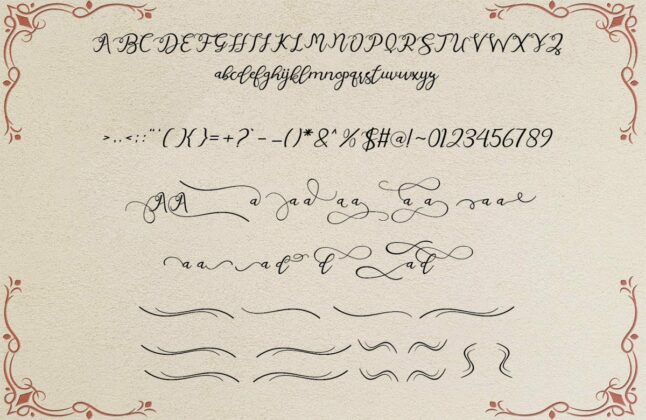 ABCDEFGHIJKLMNOPQRSTUVWXYZ
abcdefghijklmnopqrstuvwxyz
>.,<;:¨'(){}=+?`-_()*&^%$#@!~0123456789
AA a aa aa aa aae
aa ad d ad